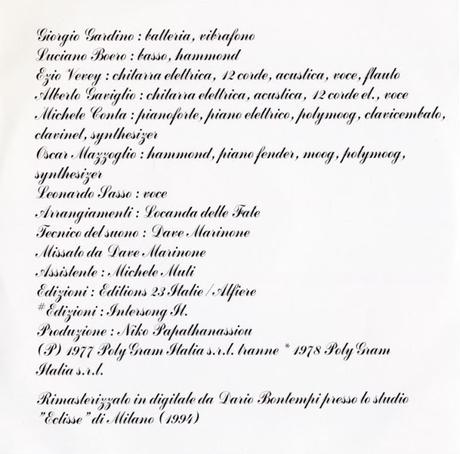 Giorgio Gardino : batteria, vibrafono
Luciano Boero : basso, hammond
Ezio Vevey : chitarra elettrica, 12 corde, acustica, voce, flauto
Alberto Gaviglio : chitarra elettrica, acustica, 12 corde el., voce
Michele Conta : pianoforte, piano elettrico, polymoog, clavicembalo,
clavinet, synthesizer
Oscar Mazzoglio : hammond, piano fender, moog, polymoog,
synthesizer
Leonardo Sasso : voce
Arrangiamenti : Locanda delle Fate
Tecnico del suono : Dave Marinone
Missato da Dave Marinone
Assistente : Michele Muti
Edizioni : Editions 23 Italie / Alfiere
# Edizioni : Intersong It.
Produzione : Niko Papathanassiou
(P) 1977 Poly Gram Italia s.r.l. tranne * 1978 Poly Gram
Italia s.r.l.
Rimasterizzato in digitale da Dario Bontempi presso lo studio
"Eclisse" di Milano (1994)